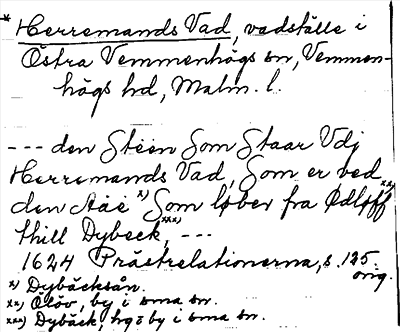 * Herremands Vad, vadställe i
Östra Vemmenhögs sn, Vemmen-
högs hd, Malm. l.
--- den Stéén Som Staar Vdj
Herremands Vad, Som er ved
den Aae x) Som løber fra Ødløff xx)
thill Dybeck, xxx) ---
1624 Prästrelationerna, s. 125
orig.
x) Dybäcksån.
xx) Ölöv, by i sma sn.
xxx) Dybäck, hg o by i sma sn.